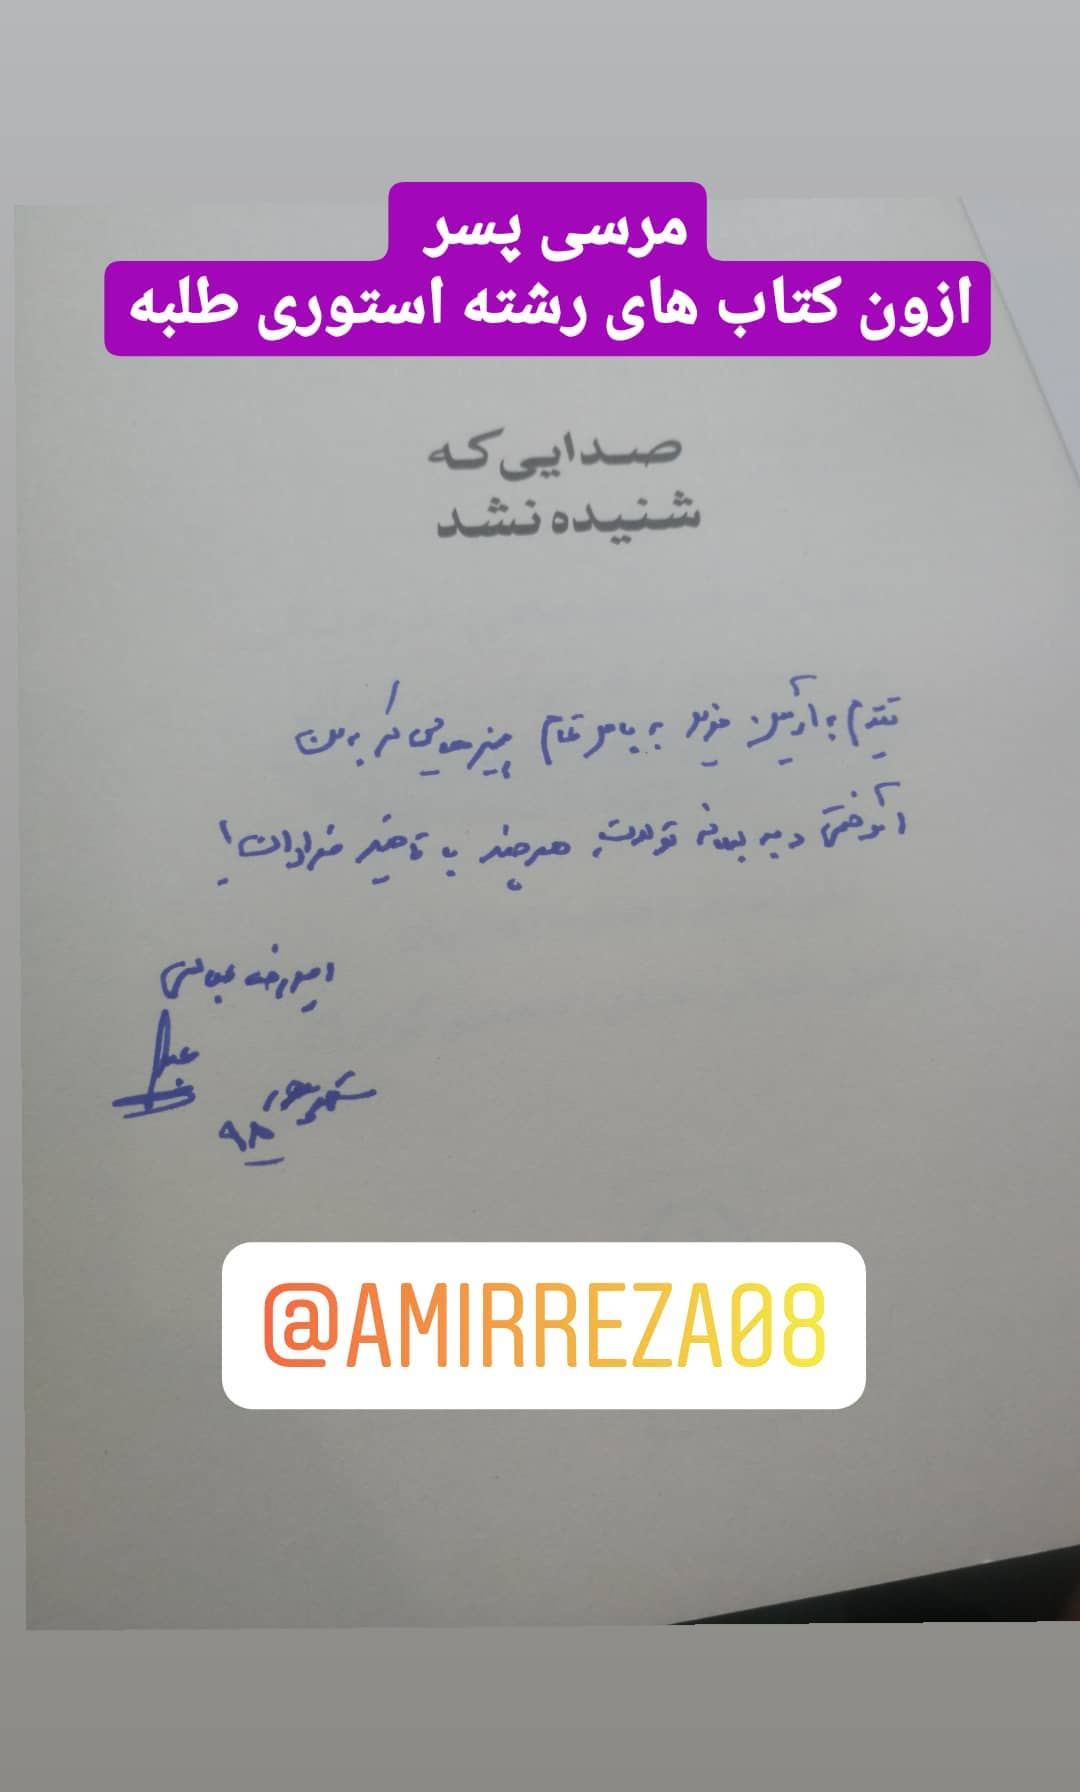 مرسی پسر
ازون کتاب های رشته استوری طلبه
صدایی که
شنیده نشد
تقدیم به آرمین عزیز به پاس تمام چیزهایی که به من
آموختی و به بهانه تولدت، هرچند با تاخیر فراوان!
امیررضا عباسی
شهریور
۹۸
@AMIRREZA08